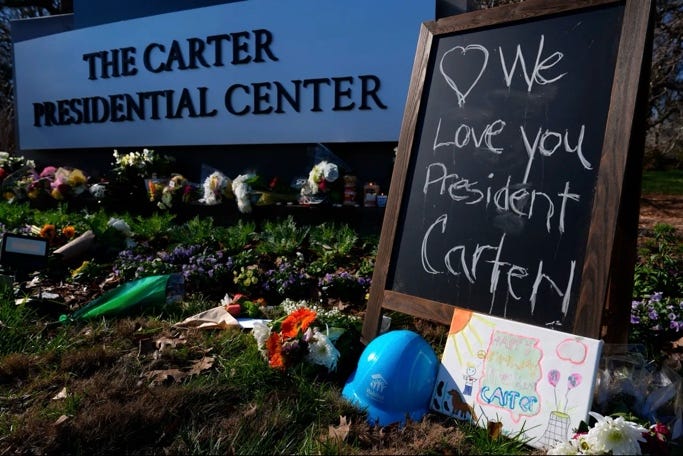 THE CARTER
PRESIDENTIAL CENTER
We
Love you
President
Carter
CARTER